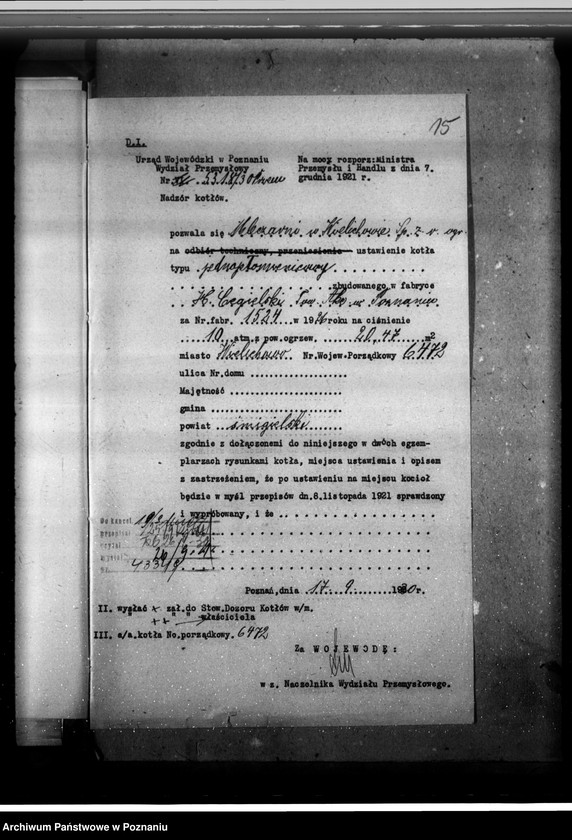 15
D.I.
Urząd Wojewódzki w Poznaniu
Wydział Przemysłowy
Nr
Nadzór kotłów.
Na mocy rozporz:Ministra
Przemysłu i Handlu z dnia 7.
grudnia 1921 r.
pozwala się Mleczarni w Wielichowie Sp. z o. ogr.
na odbiór techniczny, przeniesienie ustawienie kotła
typu jednopłomienicowy
zbudowanego w fabryce
H. Cegielski Tow. Akc. w Poznaniu
za Nr.fabr. 1524 w 1926 roku na ciśnienie
10 atm.z pow.ogrzew. 20,47 m2
miasto Wielichowo. Nr.Wojew.Porządkowy 6472
ulica Nr.domu
Majętność
gmina
powiat śmigielski
zgodnie z dołączonemi do niniejszego w dwóch egzem-
plarzach rysunkami kotła, miejsca ustawienia i opisem
z zastrzeżeniem, że po ustawieniu na miejscu kocioł
będzie w myśl przepisów dn.8.listopada 1921 sprawdzony
i wypróbowany, i że
Poznań,dnia 17. 9. 1930r.
II. wysłać zał. do Stow.Dozoru Kotłów w/m.
właściciela
III. a/a.kotła No.porządkowy. 6472
Za WOJEWODĘ:
w z. Naczelnika Wydziału Przemysłowego.
Archiwum Państwowe w Poznaniu